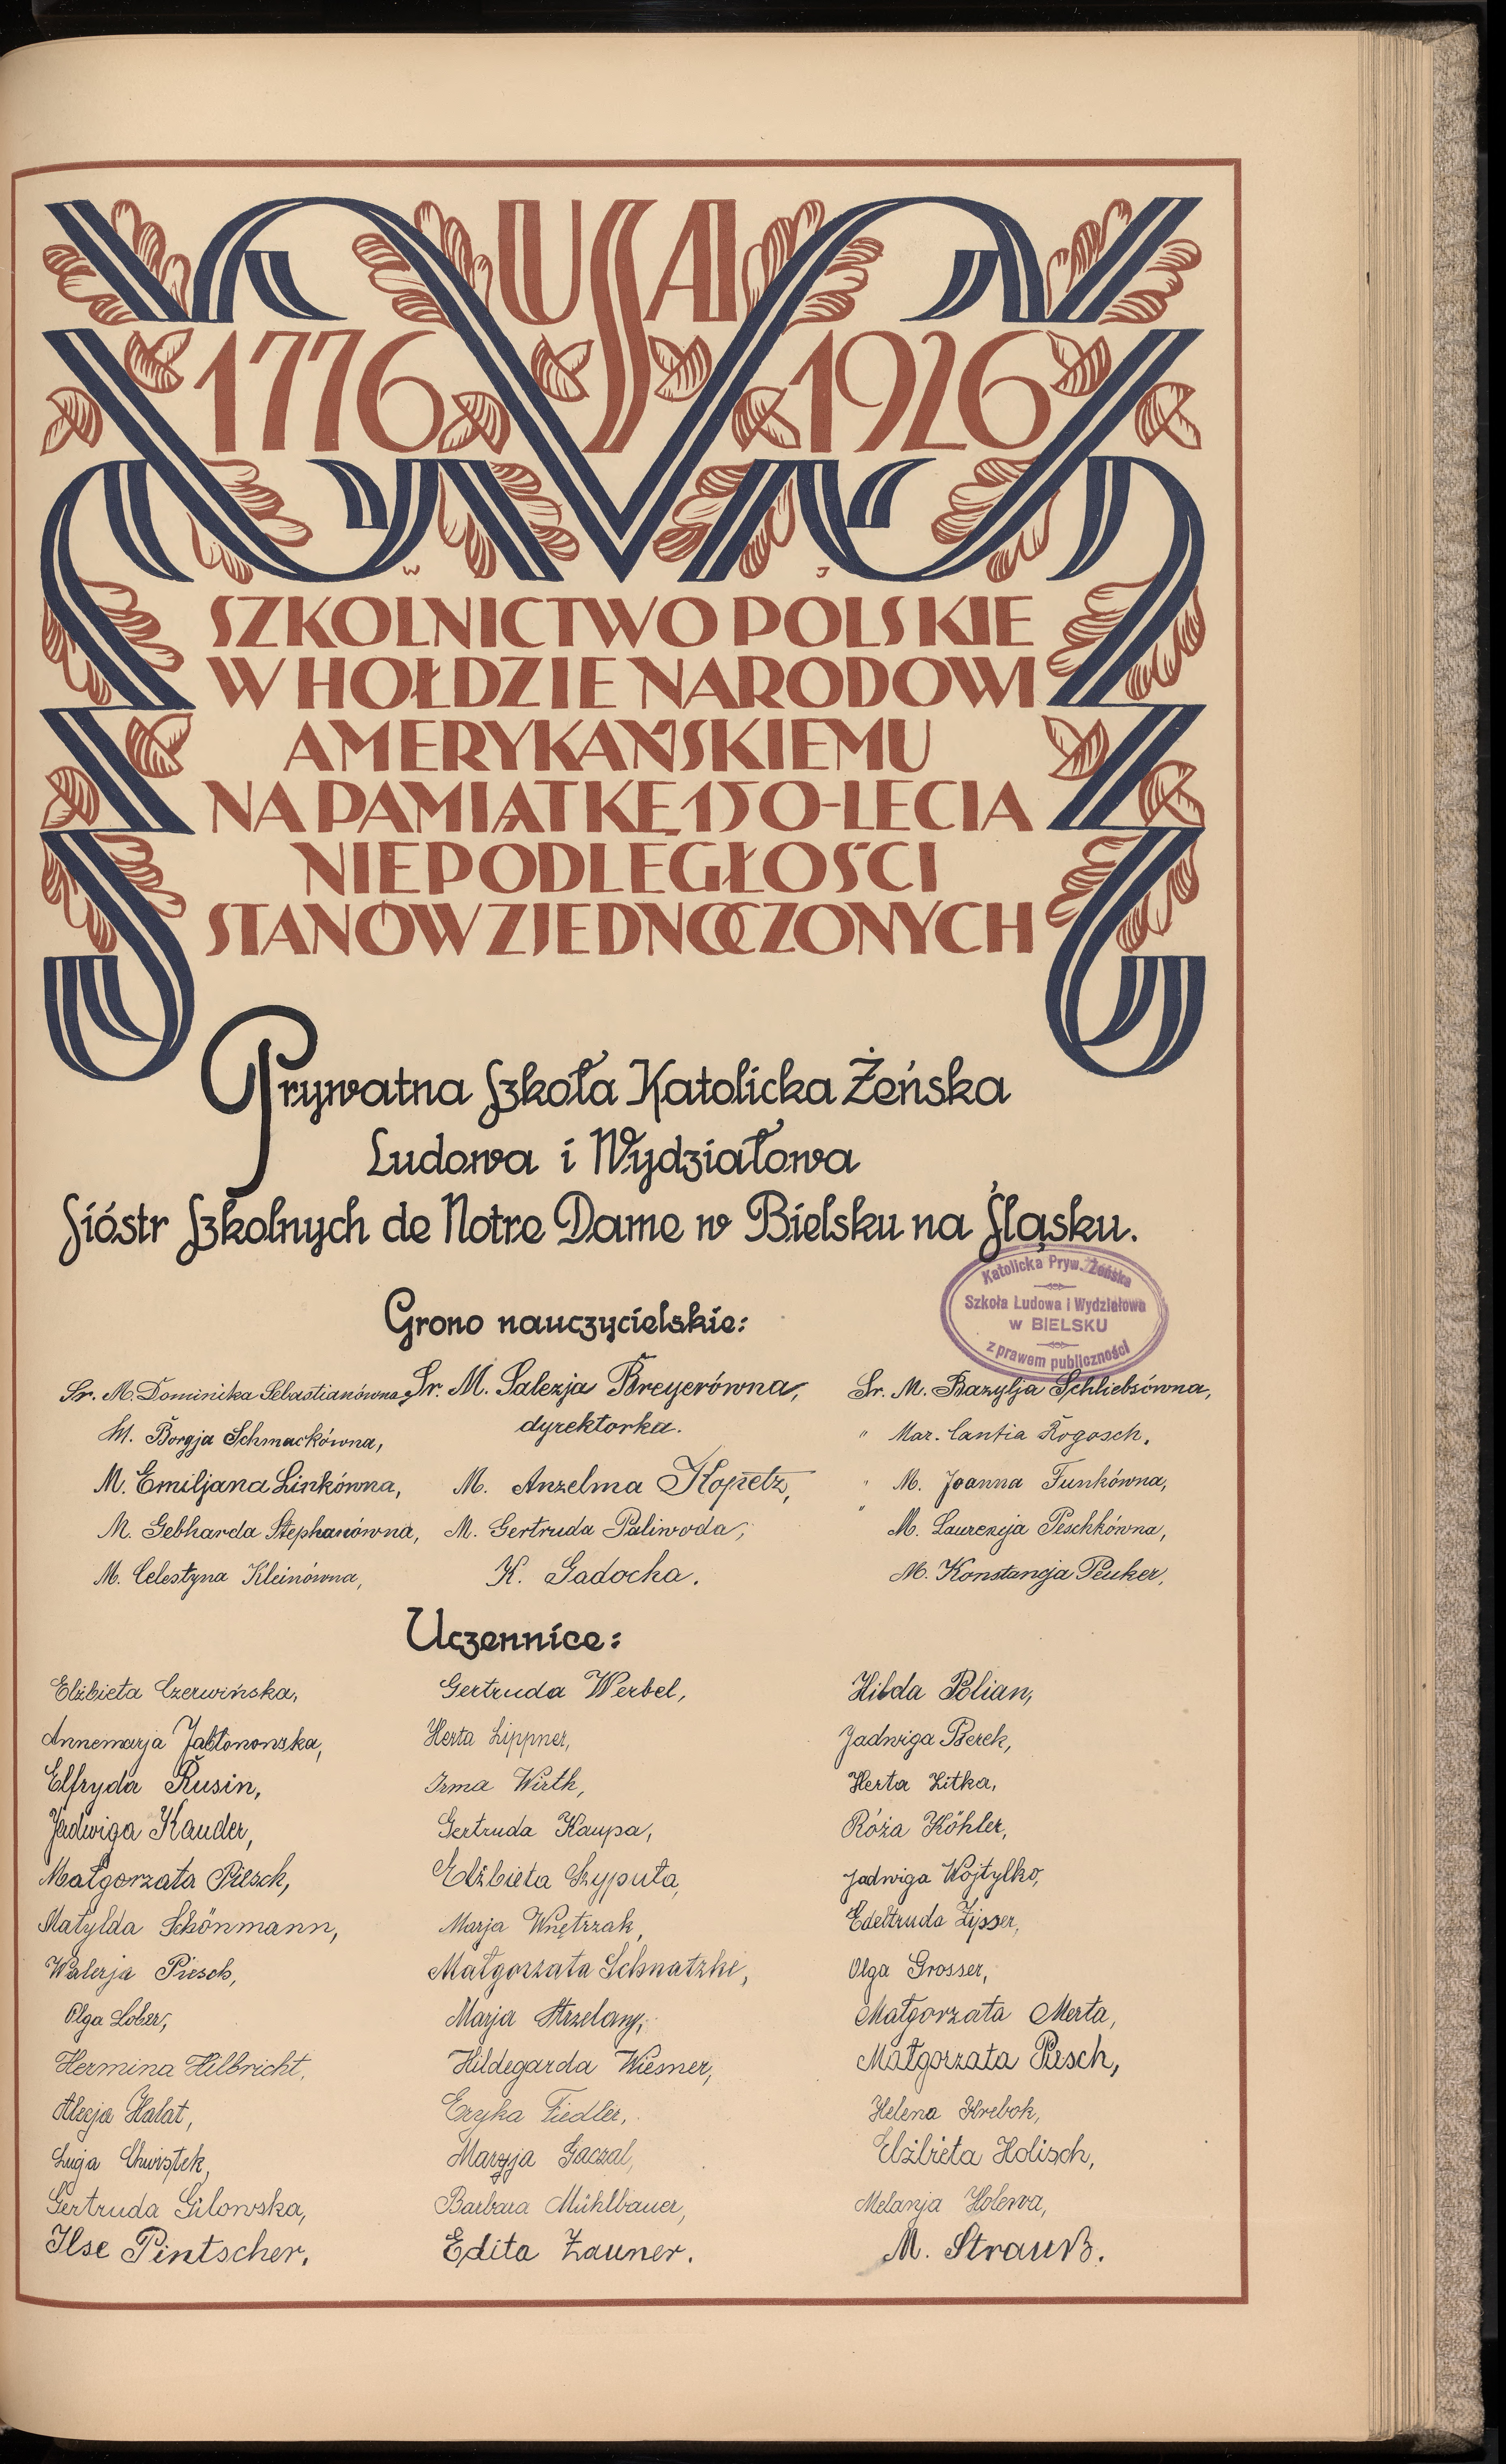 USA
1776 1926
W J
SZKOLNICTWO POLSKIE
W HOŁDZIE NARODOWI
AMERYKAŃSKIEMU
NA PAMIĄTKĘ 150-LECIA
NIEPODLEGŁOŚCI
STANÓW ZJEDNOCZONYCH
Prywatna Szkoła Katolicka Żeńska
Ludowa i Wydziałowa
Sióstr Szkolnych de Notre Dame w Bielsku na Śląsku.
Katolicka Pryw. Żeńska
Szkoła Ludowa i Wydziałowa
w BIELSKU
z prawem publiczności
Grono nauczycielskie:
Sr. M. Dominika Sebastianówna, Sr. M. Salezja Breyerówna, Sr. M. Bazylja Schliebsówna,
dyrektorka.
M. Borgja Schmackówna, " Mar. Cantia Rogosch.
M. Emiljana Linkówna, M. Anzelma Kopetz, " M. Joanna Funkówna,
M. Gebharda Stephanówna, M. Gertruda Paliwoda, " M. Laurencja Peschkówna,
M. Celestyna Kleinówna, K. Gadocha. M. Konstancja Peuker,
Uczennice:
Elżbieta Czerwińska, Gertruda Werbel, Hilda Polian,
Annemarja Jabłonowska, Herta Lippner, Jadwiga Berek,
Elfryda Rusin, Irma Wirth, Herta Zitka,
Jadwiga Kauder, Gertruda Kaupa, Róża Köhler,
Małgorzata Piesch, Elżbieta Szypuła, Jadwiga Wojtylko,
Matylda Schönmann, Marja Wnętrzak, Edeltruda Zipser,
Walerja Piesch, Małgorzata Schnatzke, Olga Grosser,
Olga Lober, Marja Strzelany, Małgorzata Merta,
Hermina Hilbricht, Hildegarda Wiesner, Małgorzata Piesch,
Alicja Hałat, Eryka Fiedler, Helena Krebok,
Łucja Chwistek, Maryja Gaczał, Elżbieta Holisch,
Gertruda Gilowska, Barbara Mühlbauer, Melanja Holewa,
Ilse Pintscher, Edita Zauner. M. Strauß.